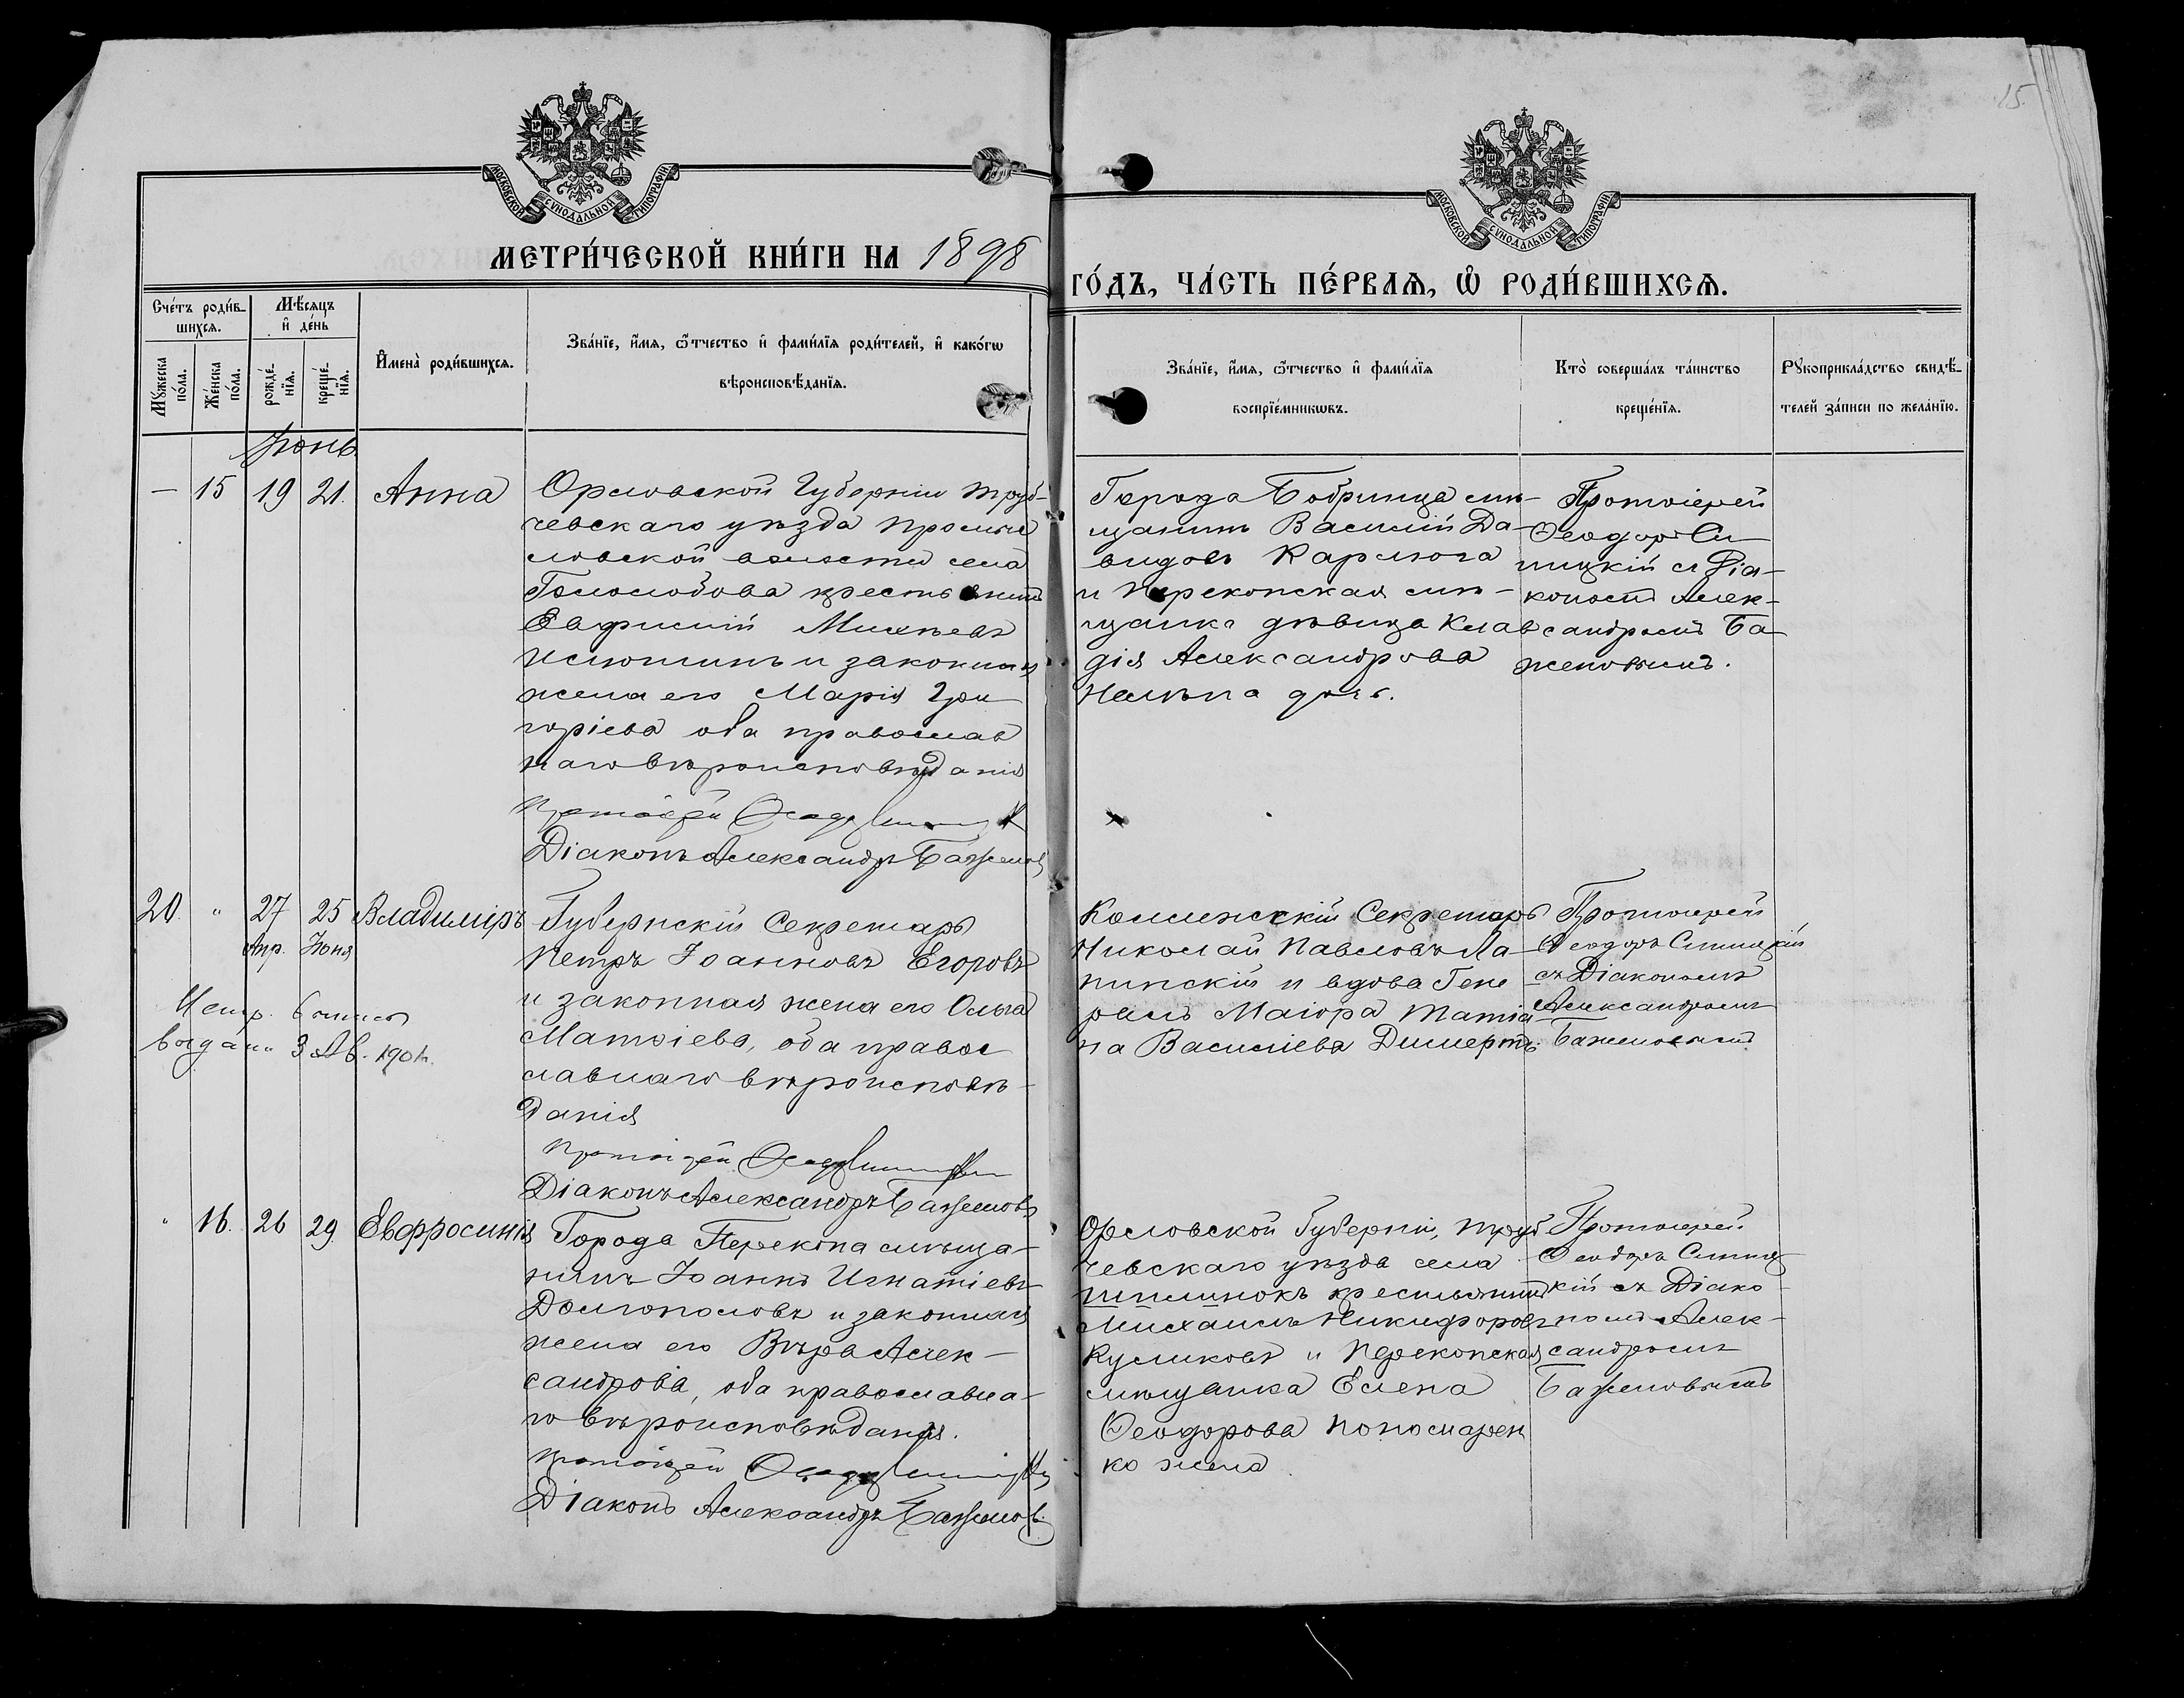 15.
МОСКОВСКОЙ СѴНОДАЛЬНОЙ ТИПОГРАФІИ
МОСКОВСКОЙ СѴНОДАЛЬНОЙ ТИПОГРАФІИ
МЕТРИ́ЧЕСКОЙ КНИ́ГИ НА 1898
ГО́ДЪ, ЧА́СТЬ ПЕ́РВАѦ, Ѡ҆ РОДИ́ВШИХСѦ.
Сче́тъ роди́в-
шихсѧ.
Мꙋ́жеска по́ла.
Же́нска по́ла.
Мѣ́сѧцъ и҆ де́нь
рожде́-нїѧ.
креще́-нїѧ.
И҆мена̀ роди́вшихсѧ.
Зва́нїе, и҆́мѧ, ѻ҆́тчество и҆ фами́лїѧ роди́телей, и҆ како́гѡ
вѣроисповѣ́данїѧ.
Зва́нїе, и҆́мѧ, ѻ҆́тчество и҆ фами́лїѧ
воспрїе́мникѡвъ.
Кто̀ соверша́лъ та́инство
креще́нїѧ.
Рꙋкоприкла́дство свидѣ́-
телей за́писи по жела́нїю.
Іюнь
— 15 19 21. Анна
Орловской Губерніи Труб-
чевскаго уѣзда
словской волости села
крестьянинъ
Евфимій Михѣевъ
и законная
жена его Марія Гри
горіева оба православ
наго вѣроисповѣданія
Протоіерей Ѳеод
Діаконъ Александръ Баженовъ
Города Бобринца мѣ-
щанинъ Василій Да-
видовъ Карлюга
и Перекопская мѣ-
щанка дѣвица Клав
дія Александрова
дочь.
Протоіерей
Ѳеодоръ Си
ницкій съ Діа-
кономъ Алек-
сандромъ Ба
женовымъ.
20. " 27 25 Владиміръ
Апр. Іюня
Метр.
выдана 3 1901 г.
Губернскій Секретарь
Петръ Іоанновъ Егоровъ
и законная жена его Ольга
Матѳіева, оба право
славнаго вѣроисповѣ-
данія
Протоіерей Ѳеод
Діаконъ Александръ Баженовъ
Коллежскій Секретарь
Николай Павловъ Ла-
пинскій и вдова Гене
ралъ Маіора Татіа
на Василіева
Протоіерей
Ѳеодоръ Синицкій
съ Діакономъ
Александромъ
Баженовымъ
" 16. 26 29. Евфросинія
Города Перекопа мѣща-
нинъ Іоаннъ Игнатіевъ
Долгополовъ и законная
жена его Вѣра Алек-
сандрова, оба православна-
го вѣроисповѣданія.
Протоіерей Ѳеод
Діаконъ Александръ Баженовъ
Орловской Губерніи, Труб
чевскаго уѣзда села
крестьянинъ
Михаилъ Никифоровъ
Куликовъ и Перекопская
мѣщанка Елена
Ѳеодорова Пономарен
ко жена.
Протоіерей
Ѳеодоръ Синиц
кій съ Діако
номъ Алек-
сандромъ
Баженовымъ